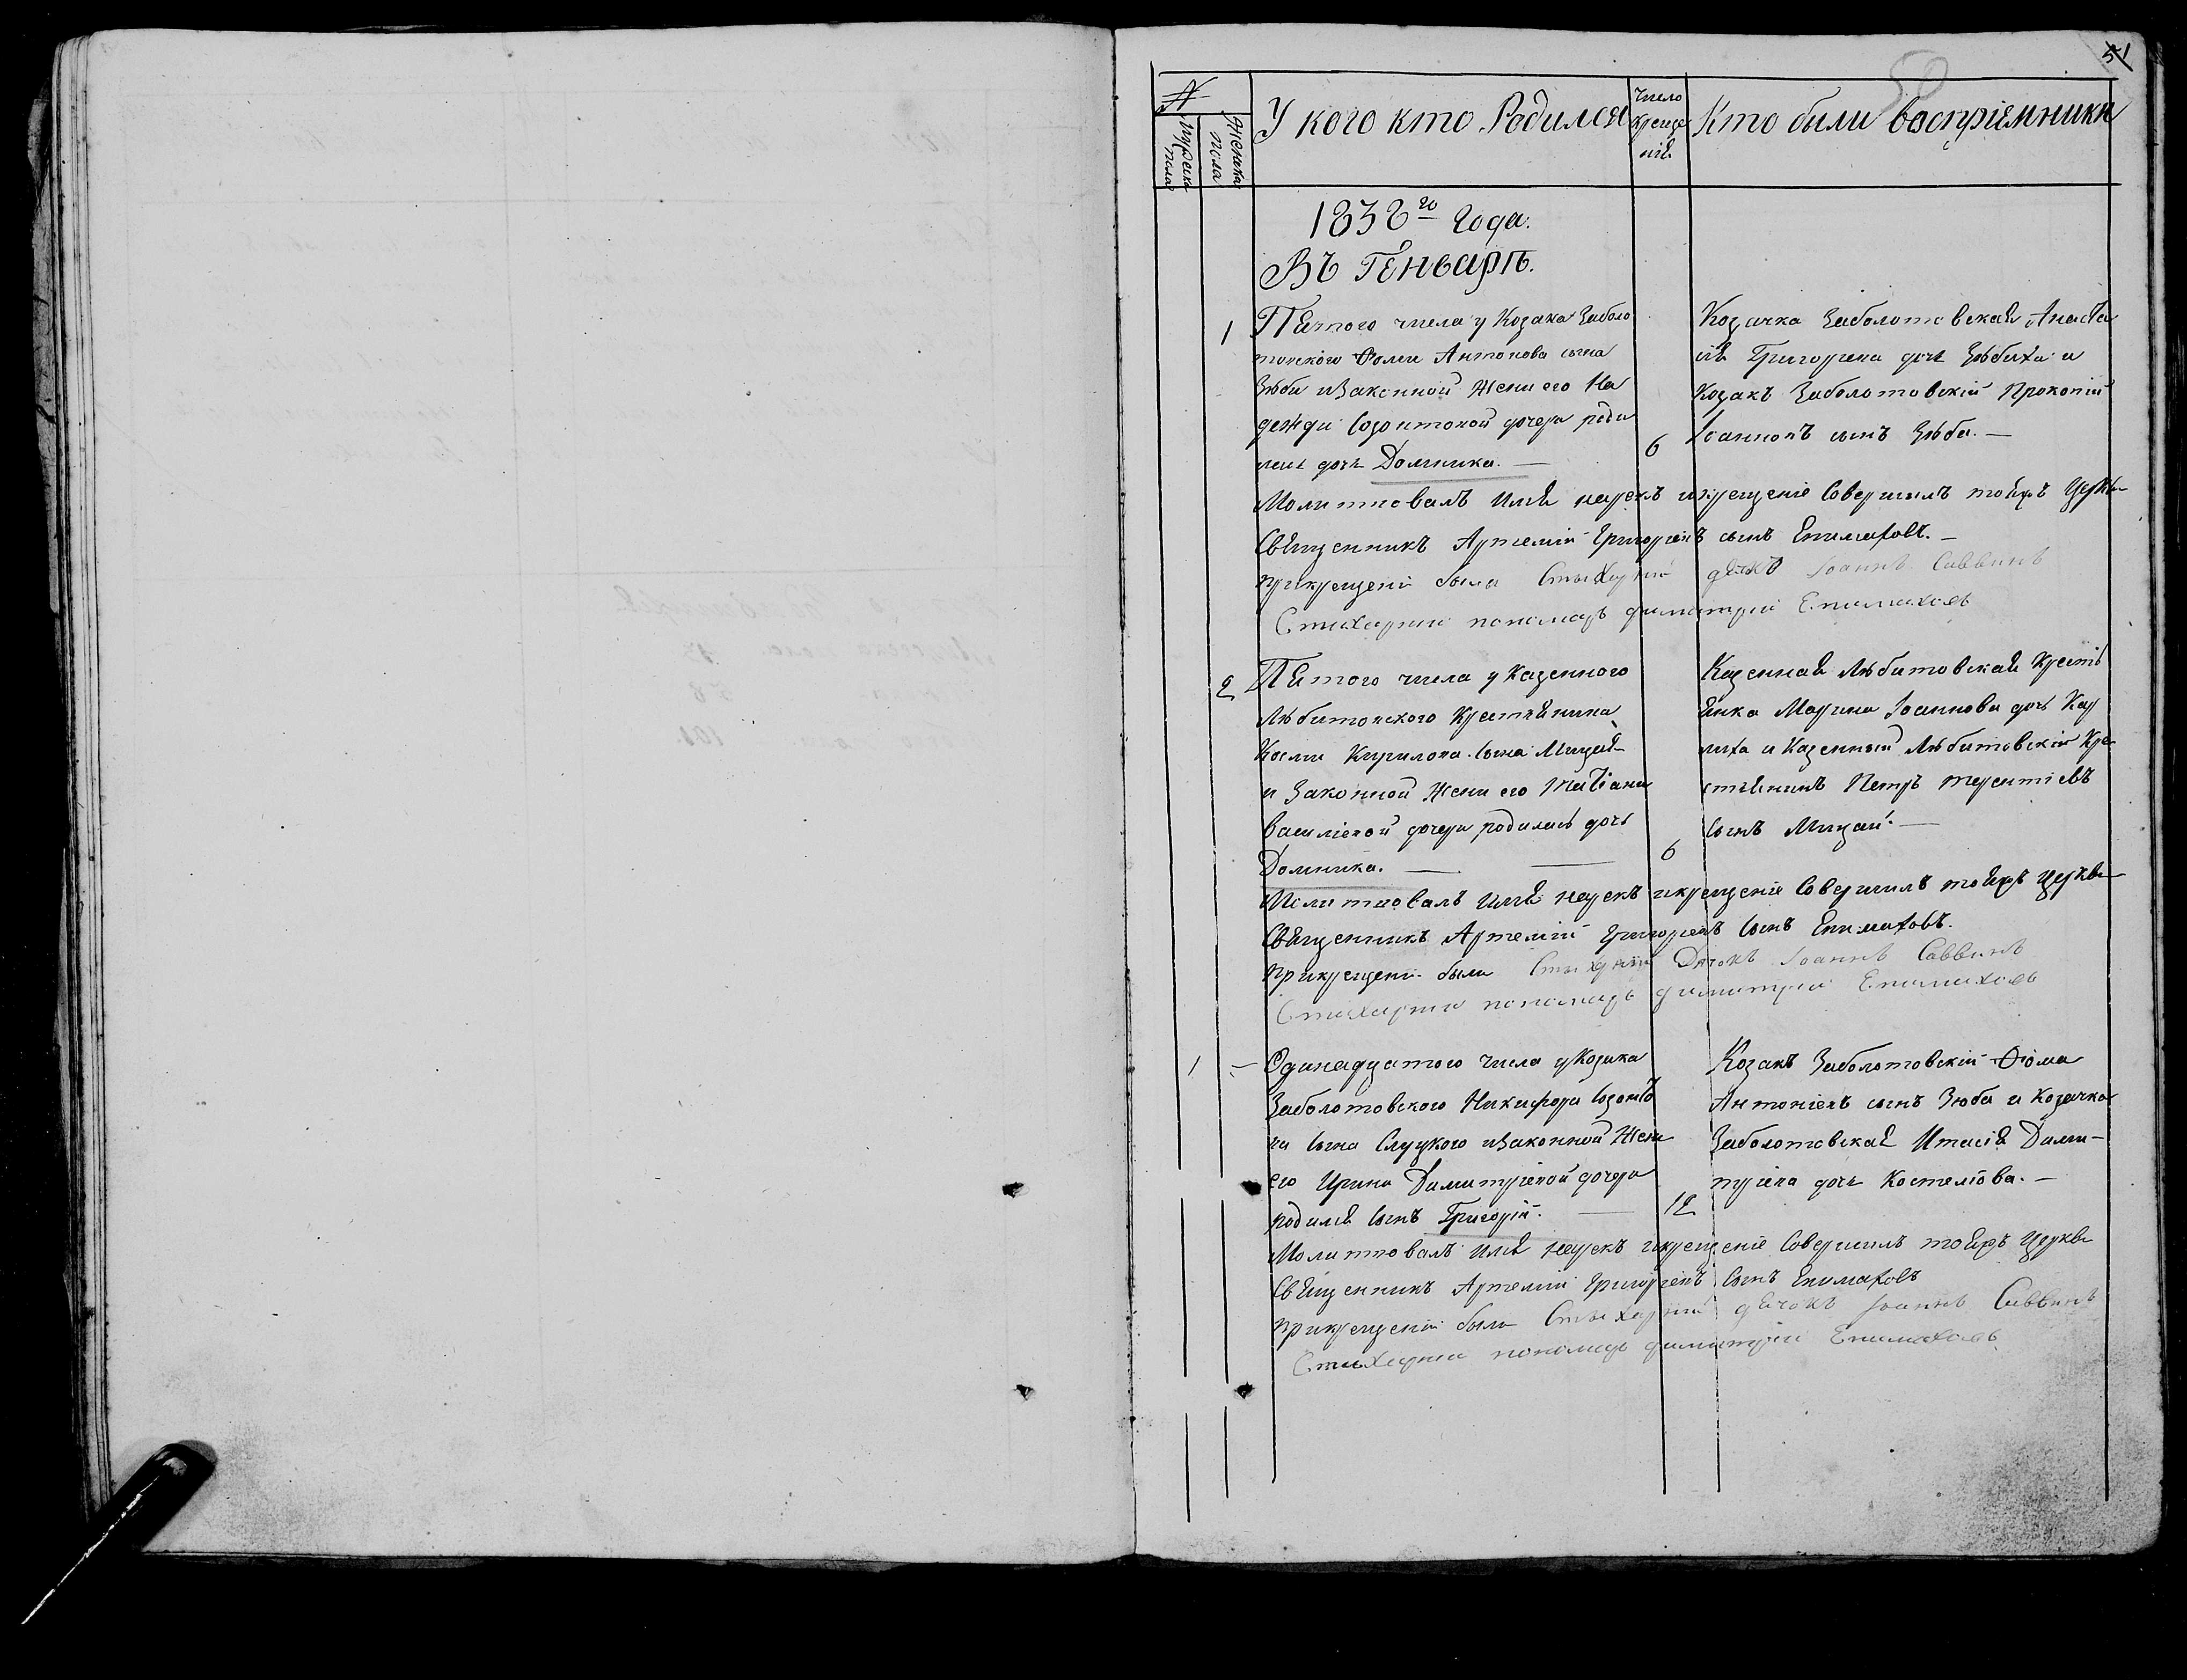 51
50
№
Мужеска пола
Женска пола
У кого кто Родился
Число Креще нія
Кто были воспріемники
1838го Года.
Въ Генварѣ.
1
Пятого числа у Козака Заболо
товского Фомы Антонова сына
Зюби изаконной Жени его На
дежди Созонтовой дочери роди
лась дочь Домника. —
6
Козачка Заболотовская Анаста
сія Григориева дочь Зюбиха и
Козакъ Заболотовскій Прокопій
Іоанновъ сынъ Зюба. —
Молитвовалъ Имя нарекъ икрещеніе Совершилъ тояжъ Церкви
Священникъ Артемій Григориевъ сынъ Епимаховъ. —
прикрещеніи были Стихарній дячокъ Іоаннъ Саввинъ
Стихарній пономарь димитрій Епимаховъ
2
Пятого числа у Казенного
Любитовского Крестьянина
Косми Кирилова Сына Мицай
и Законной Жени его Татіани
Василіевой дочери родилась дочь
Домника. —
6
Казенная Любитовская Кресть
янка Марина Іоаннова дочь Кар
пиха и Казенный Любитовскій Кре
стьянинъ Петръ терентіевъ
Сынъ Мицай. —
Молитвовалъ Имя нарекъ икрещеніе Совершилъ тояжъ Церкви
Священникъ Артемій Григориевъ Сынъ Епимаховъ.
Прикрещеніи были Стихарній Дячокъ Іоаннъ Саввинъ
Стихарній пономарь димитрій Епимаховъ
1 —
Одинадцатого Числа у Козака
Заболотовского Никифора Созонто
ва Сына Слуцкого изаконной Жени
его Ирини Димитріевой дочери
родился Сынъ Григорій. —
12
Козакъ Заболотовскій Фома
Антоніевъ сынъ Зюба и Козачка
Заболотовская Дими-
тріева дочь —
Молитвовалъ Имя нарекъ икрещеніе Совершилъ тояжъ Церкви
Священникъ Артемій Григориевъ Сынъ Епимаховъ
прикрещеніи были Стихарній дячокъ Іоаннъ Саввинъ
Стихарній пономарь димитрій Епимаховъ